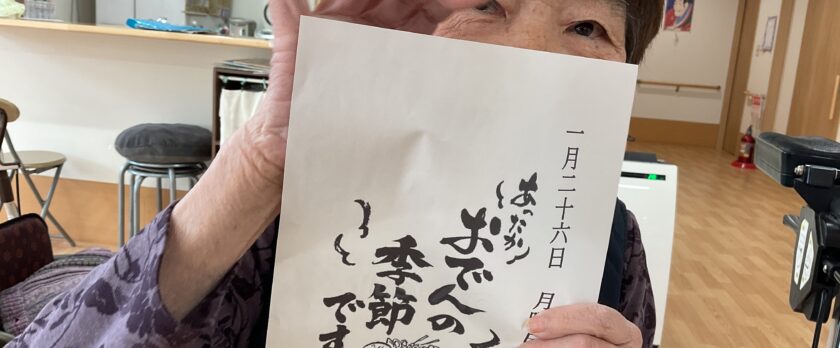 一月二十六日 月
あったかい
おでんの
季節
です